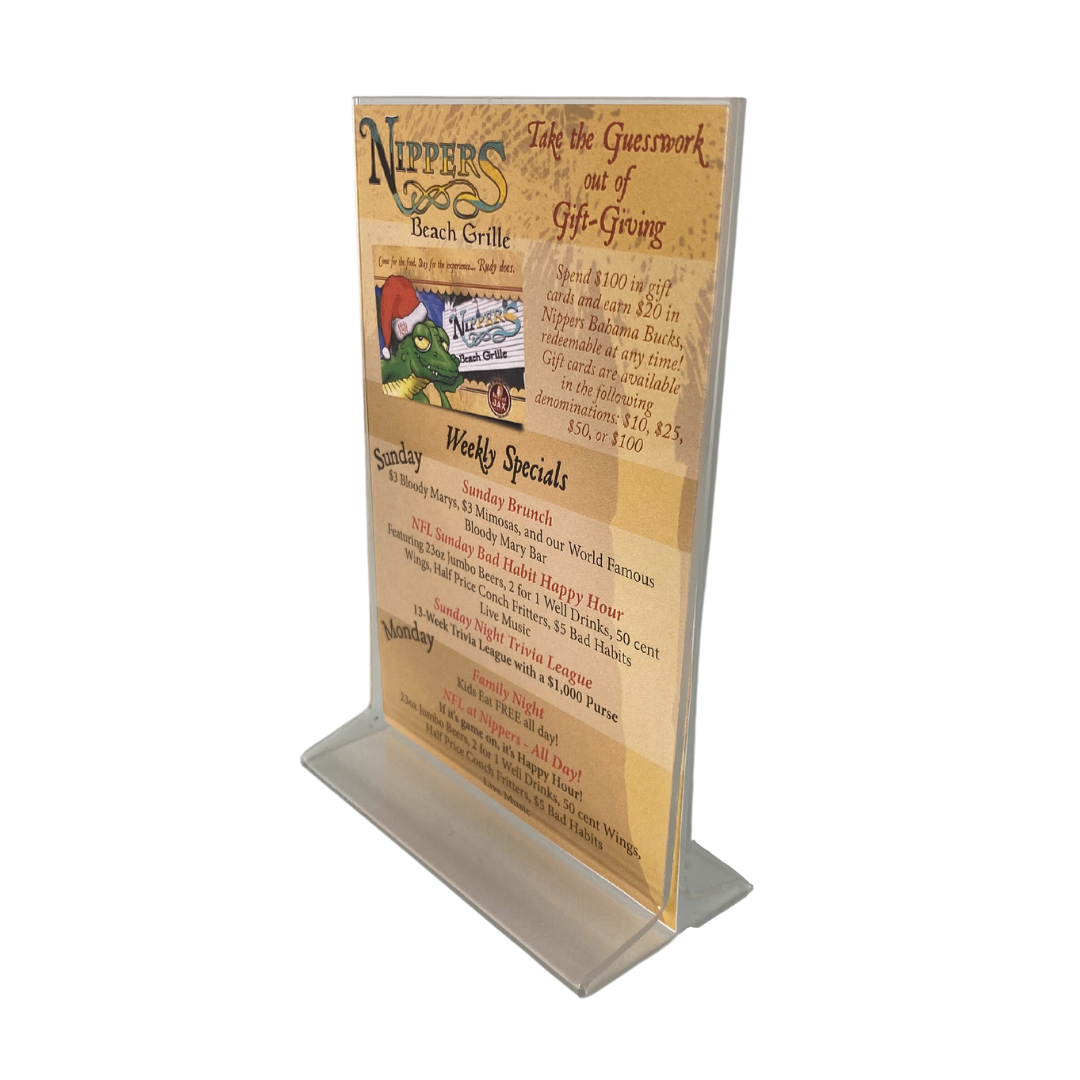 NIPPERS
Beach Grille
Take the Guesswork
out of
Gift-Giving
Come for the food. Stay for the experience... Rudy does.
NIPPERS
Beach Grille
Spend $100 in gift
cards and earn $20 in
Nippers Bahama Bucks,
redeemable at any time!
Gift cards are available
in the following
denominations: $10, $25,
$50, or $100
Weekly Specials
Sunday
Sunday Brunch
$3 Bloody Marys, $3 Mimosas, and our World Famous
Bloody Mary Bar
NFL Sunday Bad Habit Happy Hour
Featuring 23oz Jumbo Beers, 2 for 1 Well Drinks, 50 cent
Wings, Half Price Conch Fritters, $5 Bad Habits
Live Music
Sunday Night Trivia League
13-Week Trivia League with a $1,000 Purse
Monday
Family Night
Kids Eat FREE all day!
NFL at Nippers - All Day!
If it's game on, it's Happy Hour!
23oz Jumbo Beers, 2 for 1 Well Drinks, 50 cent Wings,
Half Price Conch Fritters, $5 Bad Habits
Live Music